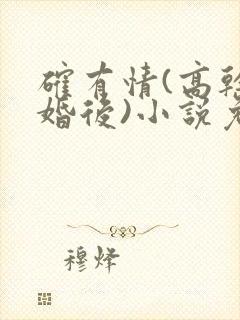 確有情(高幹
婚後)小說
穆烽